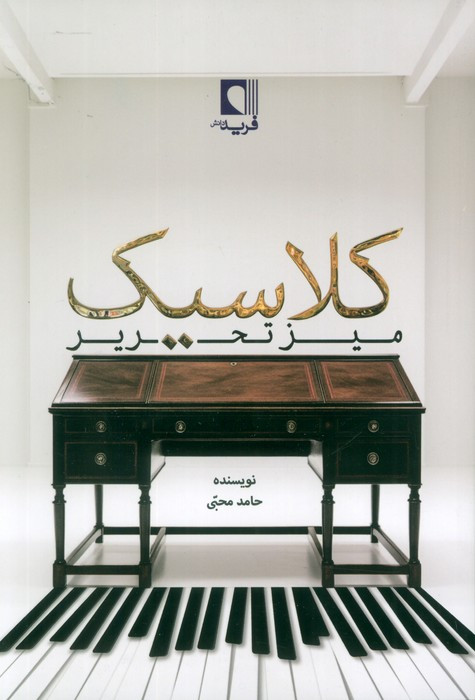 فرید دانش
کلاسیک
میز تحریر
نویسنده
حامد محبّی